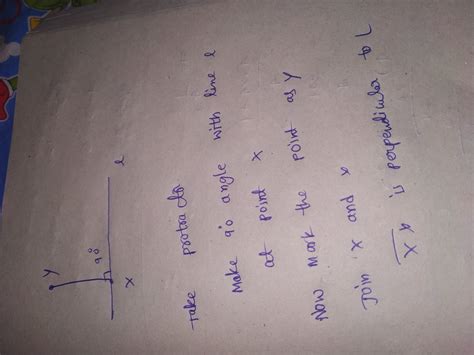 Y
90
x l
Take protractor
Make 90 angle with line l
at point X
Now mark the point as Y
Join X and y
XY is perpendicular to L